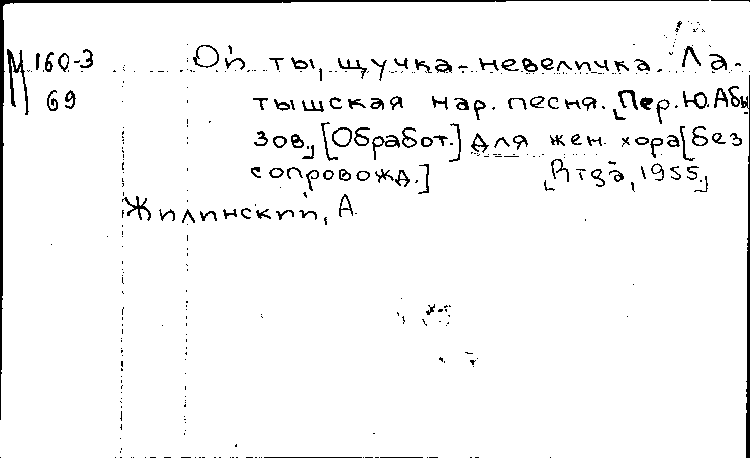 М 160-3
69
Ой ты, щучка-невеличка. Ла-
тышская нар. песня. [Пер. Ю. Абы
зов], [Обработ.] для жен. хора [без
сопровожд.] [Rīgā, 1955]
Жилинский, А.